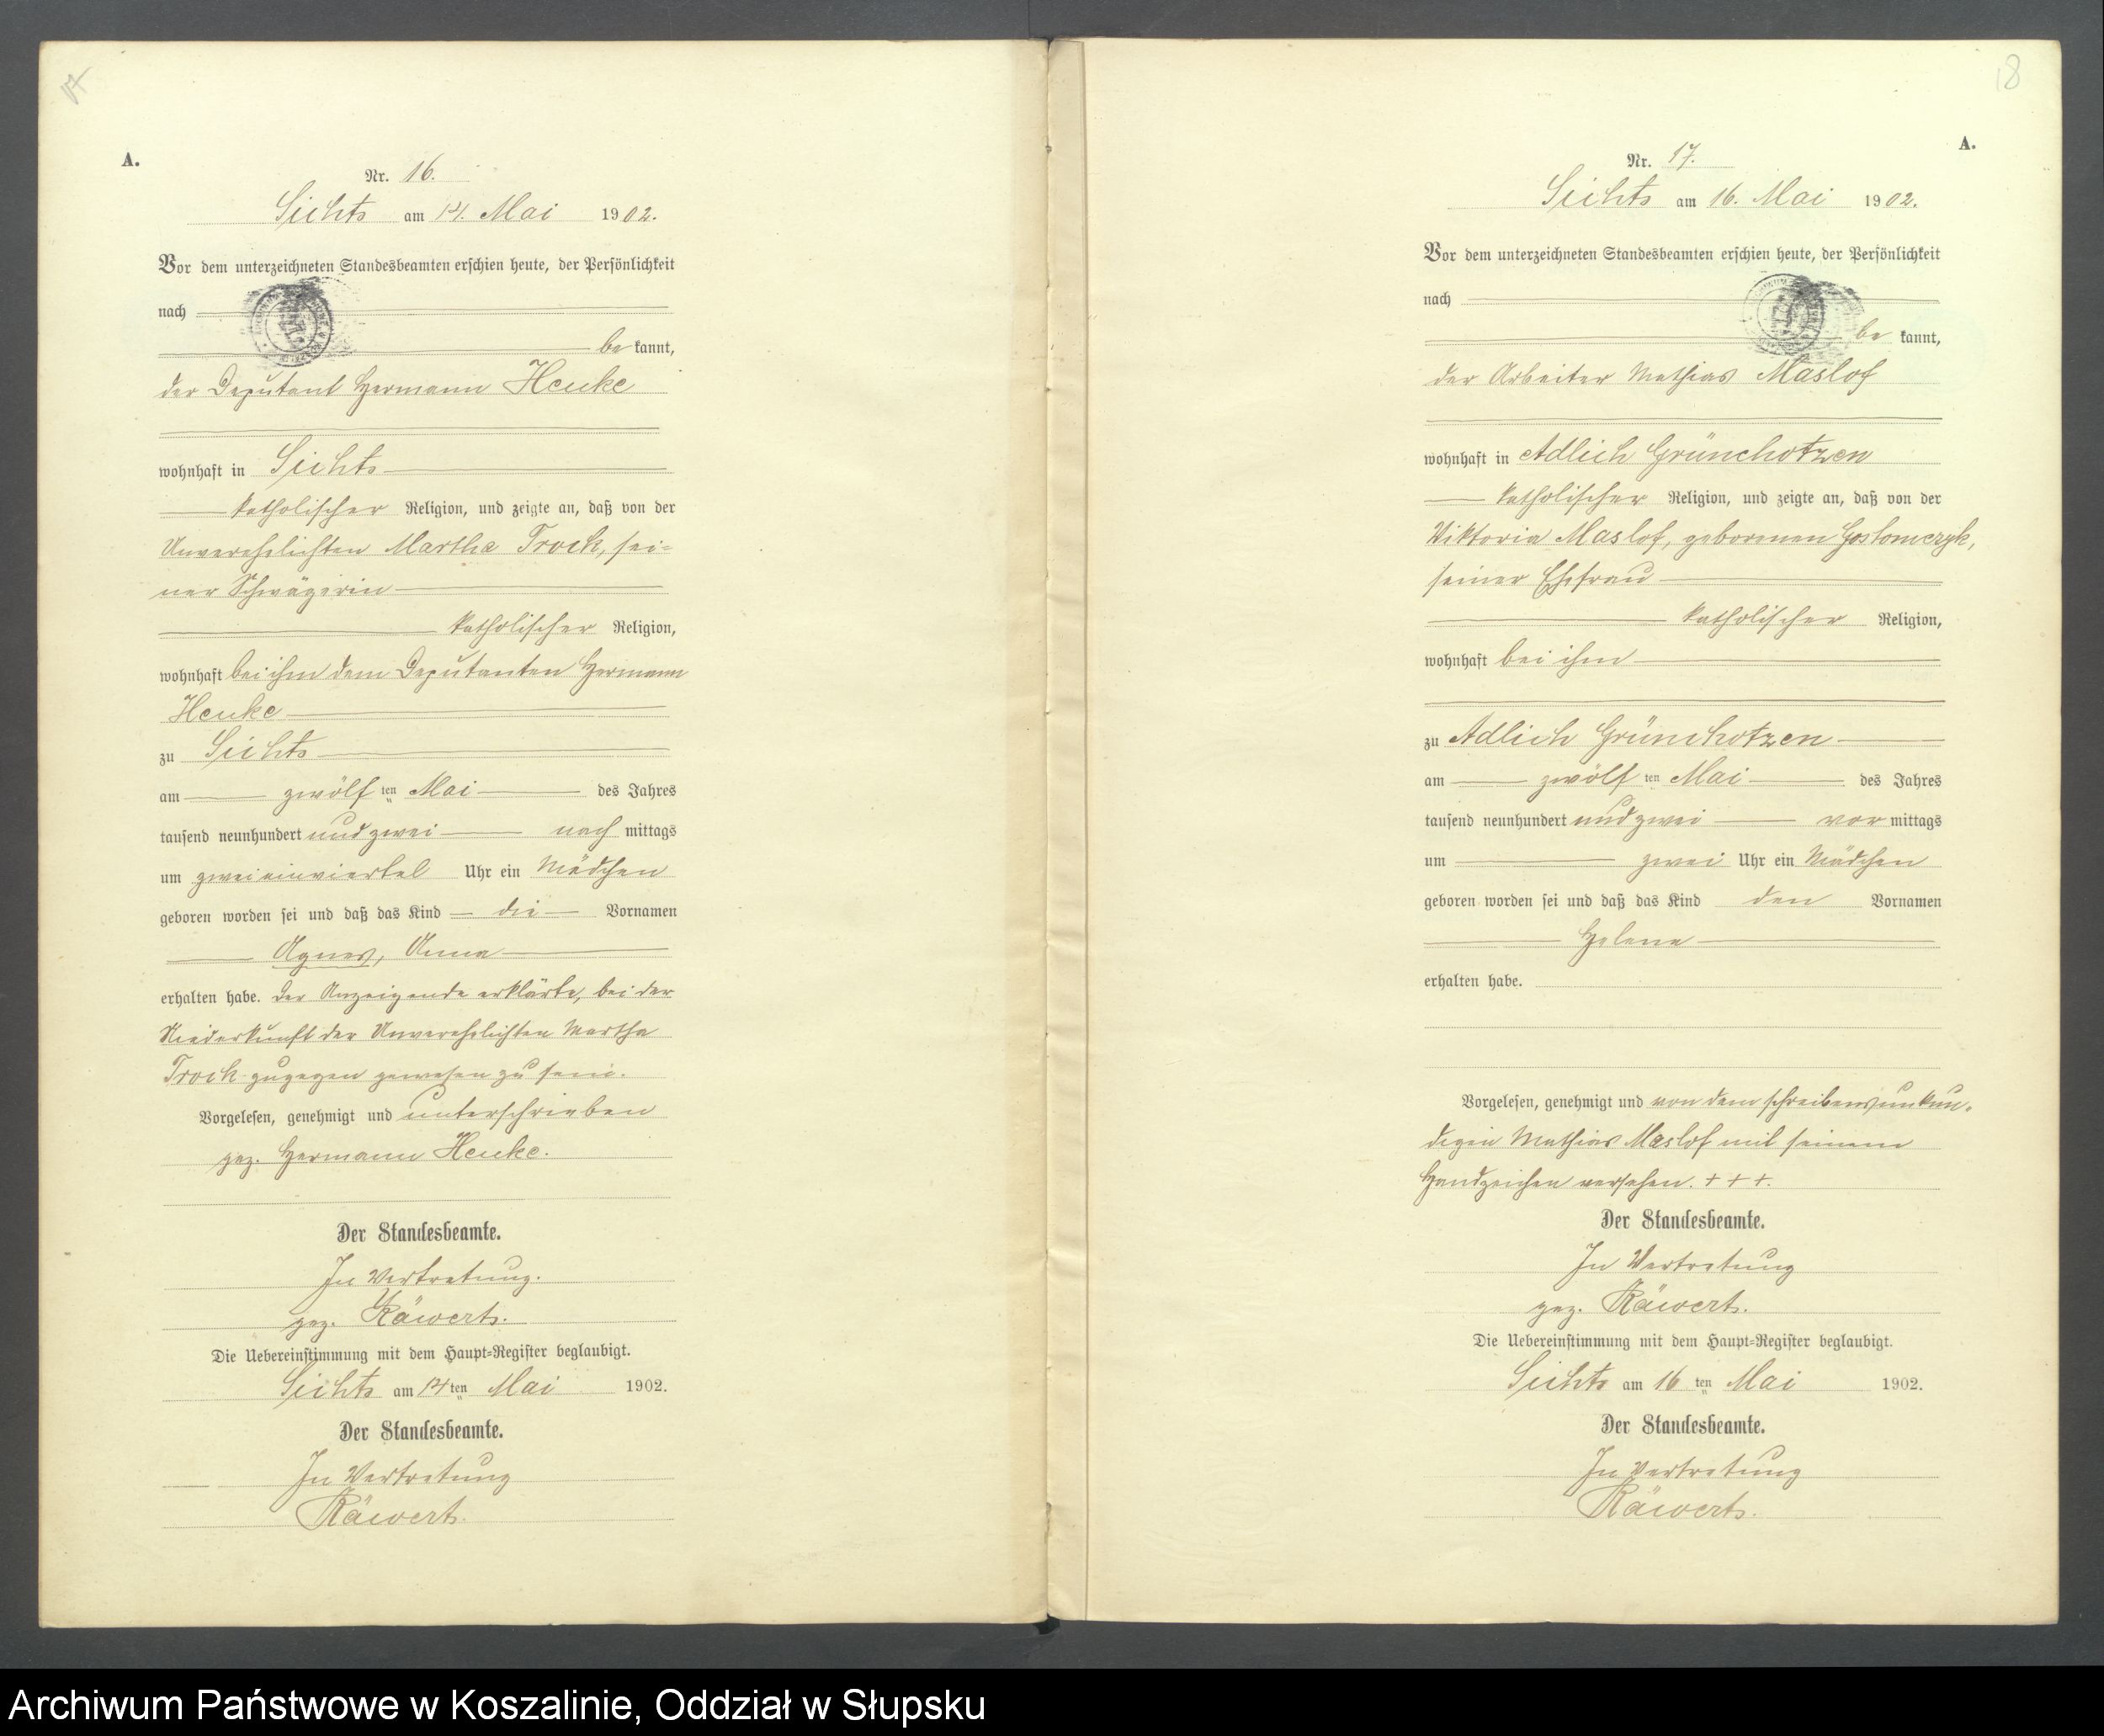 17
A.
Nr. 16.
Sichts am 14. Mai 1902.
Vor dem unterzeichneten Standesbeamten erschien heute, der Persönlichkeit
nach
be kannt,
der Deputant Hermann Henke
wohnhaft in Sichts
katholischer Religion, und zeigte an, daß von der
Unverehelichten Martha Trock, sei-
ner Schwägerin
katholischer Religion,
wohnhaft bei ihm dem Deputanten Hermann
Henke
zu Sichts
am zwölf ten Mai des Jahres
tausend neunhundert und zwei nach mittags
um zwei einviertel Uhr ein Mädchen
geboren worden sei und daß das Kind die Vornamen
Agnes, Anna
erhalten habe. Der Anzeigende erklärte, bei der
Niederkunft der Unverehelichten Martha
Trock zugegen gewesen zu sein.
Vorgelesen, genehmigt und unterschrieben
gez. Hermann Henke.
Der Standesbeamte.
In Vertretung.
gez. Räwerts.
Die Uebereinstimmung mit dem Haupt-Register beglaubigt.
Sichts am 14ten Mai 1902.
Der Standesbeamte.
In Vertretung
Räwerts.
18
A.
Nr. 17.
Sichts am 16. Mai 1902.
Vor dem unterzeichneten Standesbeamten erschien heute, der Persönlichkeit
nach
be kannt,
der Arbeiter Mathias Maslof
wohnhaft in Adlich Grünchotzen
katholischer Religion, und zeigte an, daß von der
Viktoria Maslof, geborenen Gostomczyk,
seiner Ehefrau
katholischer Religion,
wohnhaft bei ihm
zu Adlich Grünchotzen
am zwölf ten Mai des Jahres
tausend neunhundert und zwei vor mittags
um zwei Uhr ein Mädchen
geboren worden sei und daß das Kind den Vornamen
Helene
erhalten habe.
Vorgelesen, genehmigt und von dem schreibensunkun-
digen Mathias Maslof mit seinem
Handzeichen versehen. + + +.
Der Standesbeamte.
In Vertretung
gez. Räwerts.
Die Uebereinstimmung mit dem Haupt-Register beglaubigt.
Sichts am 16 ten Mai 1902.
Der Standesbeamte.
In Vertretung
Räwerts.
Archiwum Państwowe w Koszalinie, Oddział w Słupsku